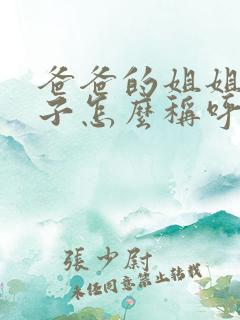 爸爸的姐姐
子怎麼稱呼
張少尉
未任同意禁止转载